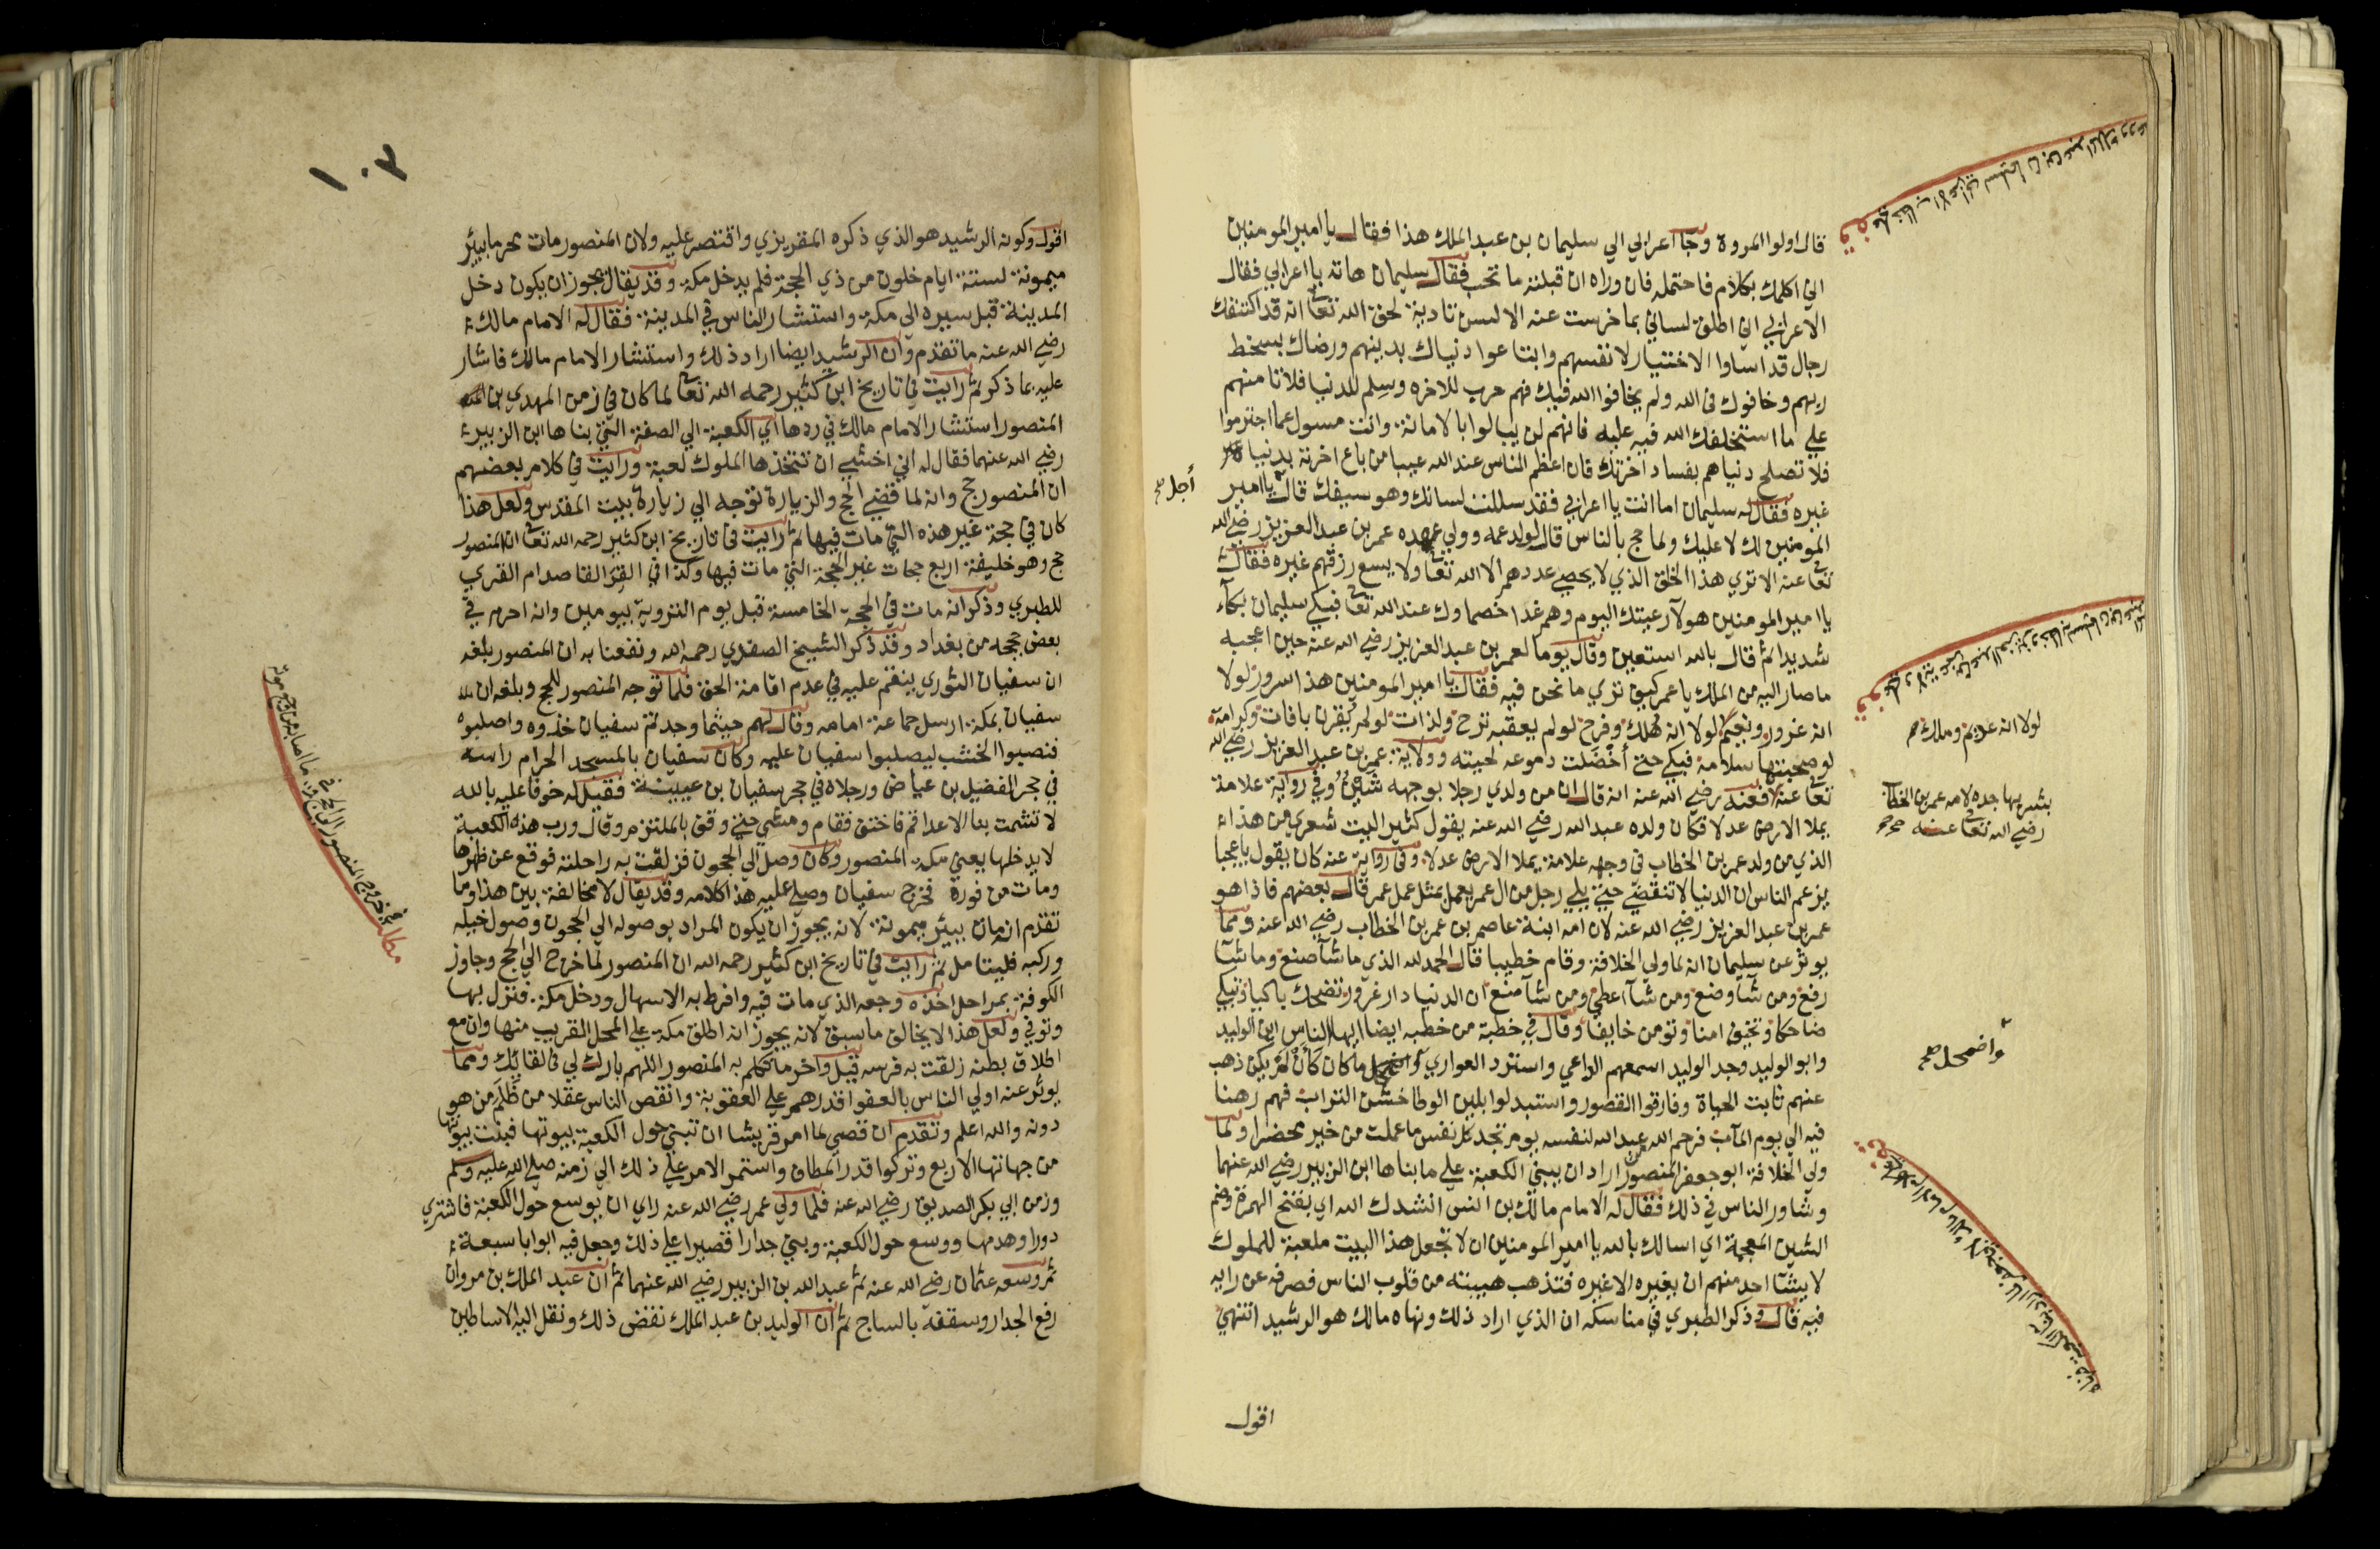 قال اولوا المروة وجا اعرابي الي سليمان بن عبد الملك هذا فقال يا امير المومنين
اني اكلمك بكلام فاحتمله فان وراه ان قبلته ما تحب فقال سليمان هاته يا اعرابي فقال
الاعرابي اني اطلق لساني بما خرست عنه الالسن تادية لحق الله تعا انه قد اكتنفك
رجال قد اساوا الاختيار لانفسهم وابتاعوا دنياك بدينهم ورضاك بسخط
ربهم وخافوك في الله ولم يخافوا الله فيك فهم حرب للاخره وسلم للدنيا فلا تامنهم
علي ما استخلفك الله فيه عليه فانهم لن يبالوا بالامانة وانت مسول عما اجترموا
فلا تصلح دنياهم بفساد اخرتك فان اعظم الناس عند الله عيبا من باع اخرته بدنيا
غيره فقال له سليمان اما انت يا اعرابي فقد سللت لسانك وهو سيفك قال يا امير
أجل صح
المومنين لك لا عليك ولما حج بالناس قال لولد عمه وولي عهده عمر بن عبد العزيز رضي الله
تعا عنه الا تري هذا الخلق الذي لا يحصي عددهم الا الله تعا ولا يسع رزقهم غيره فقال
يا امير المومنين هولا رعيتك اليوم وهم غدا خصماوك عند الله تعا فبكي سليمان بكآء
شديدا ثم قال بالله استعين وقال يوما لعمر بن عبد العزيز رضي الله عنه حين اعجبه
ما صار اليه من الملك يا عمر كيف تري ما نحن فيه فقال يا امير المومنين هذا سرور لولا
انه غرور ونعيم لولا انه هلك وفرح لو لم يعقبه ترح ولذات لو لم يقرن بافات وكرامة
لولا انه عديم وملك صح
لو صحبتها سلامة فبكي حتي أخضلت دموعه لحيته وولاية عمر بن عبد العزيز رضي الله
بشر بها جده لامه عمر بن الخطاب
رضي الله تعا عنه صح صح
تعا عنه فعنه رضي الله عنه انه قال ان من ولدي رجلا بوجهه شين وفي رواية علامة
يملا الارض عدلا فكان ولده عبد الله رضي الله عنه يقول كثيرا ليت شعري من هذا
الذي من ولد عمر بن الخطاب في وجهه علامة يملا الارض عدلا وفي رواية عنه كان يقول يا عجبا
يزعم الناس ان الدنيا لا تنقضي حتي يلي رجل من ال عمر يعمل بمثل عمل عمر قال بعضهم فاذا هو
عمر بن عبد العزيز رضي الله عنه لان امه ابنة عاصم بن عمر بن الخطاب رضي الله عنه ومما
يوثر عن سليمان انه لما ولي الخلافة وقام خطيبا قال الحمد لله الذي ما شآ صنع وما شآ
رفع ومن شآ وضع ومن شآ اعطي ومن شآ منع ان الدنيا دار غرور تضحك باكيا وتبكي
ضاحكا وتخيف امنا وتومن خايفا وقال في خطبة من خطبه ايضا ايها الناس اين الوليد
وابو الوليد وجد الوليد اسمعهم الداعي واسترد العواري واضمحل ما كان كأن لم يكن ذهب
وأضمحل صح
عنهم ثابت الحياة وفارقوا القصور واستبدلوا بلين الوطا خشن التراب فهم رهنا
فيه الي يوم المآب فرحم الله عبد الله لنفسه يوم تجد كل نفس ما عملت من خير محضرا ولما
ولي الخلافة ابو جعفر المنصور اراد ان يبني الكعبة علي ما بناها ابن الزبير رضي الله عنهما
وشاور الناس في ذلك فقال له الامام مالك بن انس انشدك الله اي بفتح الهمزة وضم
الشين المعجمة اي اسالك بالله يا امير المومنين ان لا تجعل هذا البيت ملعبة للملوك
لا يشآ احد منهم ان يغيره الا غيره فتذهب هيبته من قلوب الناس فصرفه عن رايه
فيه قال وذكر الطبري في مناسكه ان الذي اراد ذلك ونهاه مالك هو الرشيد انتهي
اقول
١٠٢
اقول وكونه الرشيد هو الذي ذكره المقريزي واقتصر عليه ولان المنصور مات محرما ببئر
ميمونة لستة ايام خلون من ذي الحجة فلم يدخل مكة وقد يقال يجوز ان يكون دخل
المدينة قبل سيره الي مكة واستشار الناس في المدينة فقال له الامام مالك
رضي الله عنه ما تقدم وان الرشيد ايضا اراد ذلك واستشار الامام مالك فاشار
عليه بما ذكر ثم رايت في تاريخ ابن كثير رحمه الله تعا لما كان في زمن المهدي بن
المنصور استشار الامام مالك في ردها اي الكعبة الي الصفة التي بناها ابن الزبير
رضي الله عنهما فقال له اني اخشي ان تتخذها الملوك لعبة ورايت في كلام بعضهم
ان المنصور حج وانه لما قضي الحج والزيارة توجه الي زيارة بيت المقدس ولعل هذا
كان في حجة غير هذه التي مات فيها ثم رايت في تاريخ ابن كثير رحمه الله تعا ان المنصور
حج وهو خليفة اربع حجات غير الحجة التي مات فيها وكذا في القرا لقاصد ام القري
للطبري وذكر انه مات في الحجة الخامسة قبل يوم التروية بيومين وانه احرم في
بعض حججه من بغداد وقد ذكر الشيخ الصفدي رحمه الله ونفعنا به ان المنصور بلغه
ان سفيان الثوري ينقم عليه في عدم اقامة الحق فلما توجه المنصور للحج وبلغه ان
سفيان بمكة ارسل جماعة امامه وقال لهم حيثما وجدتم سفيان خذوه واصلبوه
فنصبوا الخشب ليصلبوا سفيان عليه وكان سفيان بالمسجد الحرام راسه
في حجر الفضيل بن عياض ورجلاه في حجر سفيان بن عيينة فقيل له خوفا عليه بالله
لا تشمت بنا الاعدا قم فاختف فقام ومشي حتي وقف بالملتزم وقال ورب هذه الكعبة
لا يدخلها يعني مكة المنصور وكان وصل الي الحجون فزلقت به راحلته فوقع عن ظهرها
ومات من فوره فخرج سفيان وصلي عليه هذا كلامه وقد يقال لا مخالفة بين هذا وما
تقدم انه مات ببئر ميمونة لانه يجوز ان يكون المراد بوصوله الي الحجون وصول خيله
وركبه فليتامل ثم رايت في تاريخ ابن كثير رحمه الله ان المنصور لما خرج الي الحج وجاوز
الكوفة بمراحل اخذه وجعه الذي مات فيه وافرط به الاسهال ودخل مكة فنزل بها
وتوفي ولعل هذا لا يخالف ما سبق لانه يجوز انه اطلق مكة علي المحل القريب منها وان مع
اطلاق بطنه زلقت به فرسه قيل واخر ما تكلم به المنصور اللهم بارك لي في لقائك ومما
يوثر عنه اولي الناس بالعفو اقدرهم علي العقوبة وانقص الناس عقلا من ظلم من هو
دونه والله اعلم وتقدم ان قصي لما امر قريشا ان تبني حول الكعبة بيوتها فبنت بيوتها
من جهاتها الاربع وتركوا قدر المطاف واستمر الامر علي ذلك الي زمنه صلي الله عليه وسلم
وزمن ابي بكر الصديق رضي الله عنه فلما ولي عمر رضي الله عنه راي ان يوسع حول الكعبة فاشتري
دورا وهدمها ووسع حول الكعبة وبني جدارا قصيرا علي ذلك وجعل فيه ابوابا سبعة
ثم وسعه عثمان رضي الله عنه ثم عبد الله بن الزبير رضي الله عنهما ثم ان عبد الملك بن مروان
رفع الجدار وسقفه بالساج ثم ان الوليد بن عبد الملك نقض ذلك ونقل اليه الاساطين